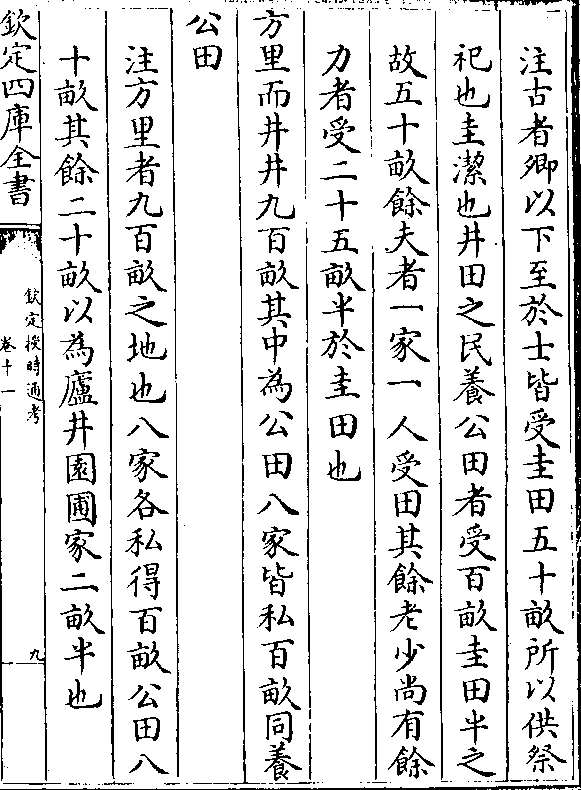 注古者卿以下至於士皆受圭田五十畝所以供祭
祀也圭潔也井田之民養公田者受百畝圭田半之
故五十畝餘夫者一家一人受田其餘老少尚有餘
力者受二十五畝半於圭田也
方里而井井九百畝其中為公田八家皆私百畝同養
公田
注方里者九百畝之地也八家各私得百畝公田八
十畝其餘二十畝以為廬井園圃家二畝半也
欽定四庫全書
欽定授時通考
卷十一
九